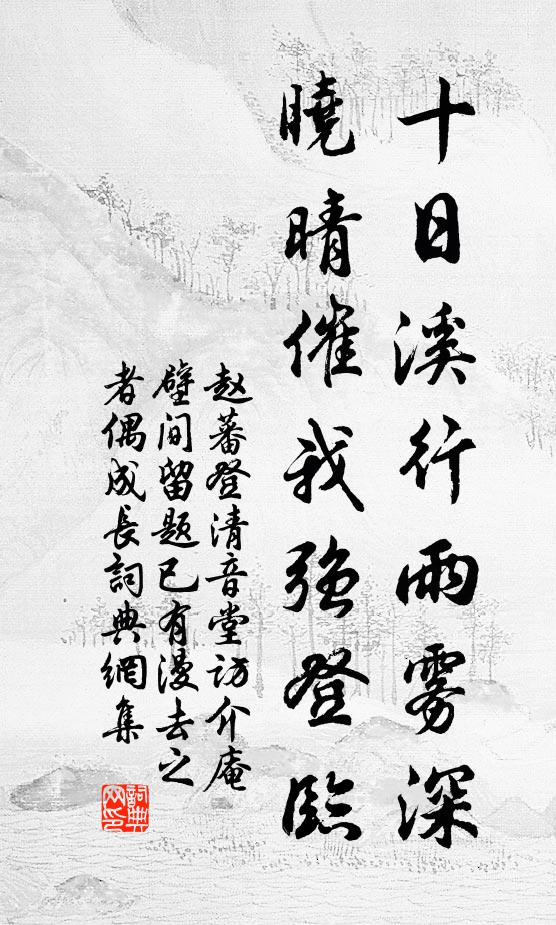 十日溪行雨雾深
曉晴催我強登臨
赵蕃登清音堂访介庵
壁间留题已有漫去之
者偶成長詞典網集
詞典
网印